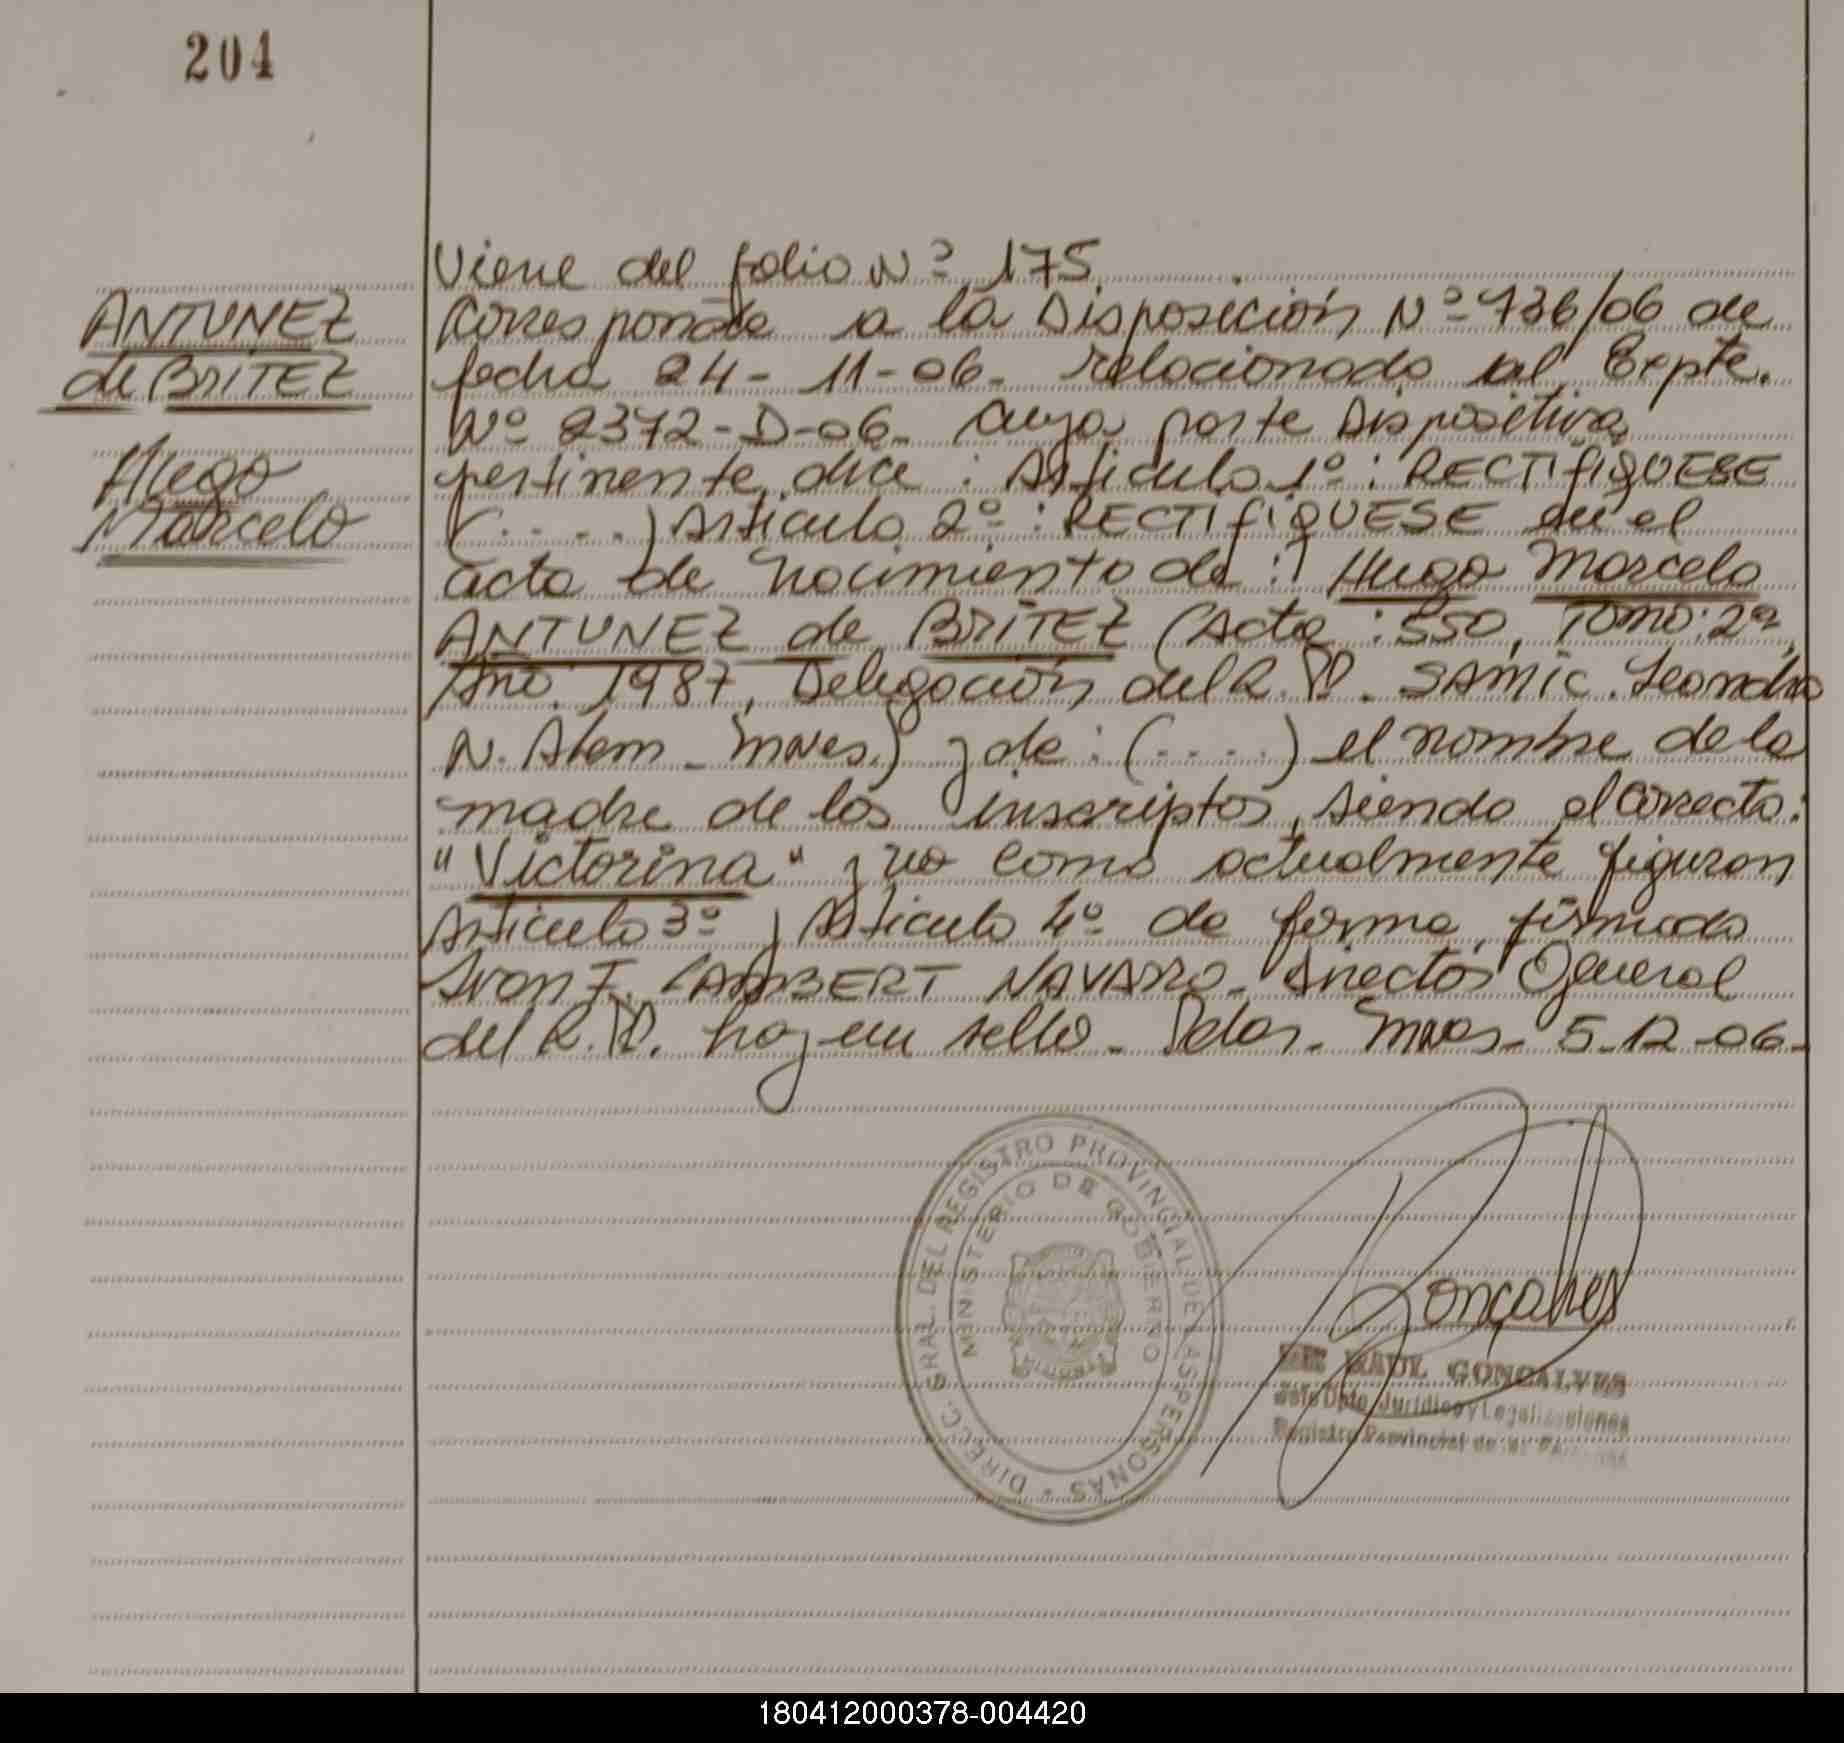 204
ANTUNEZ
de BRITEZ
Hugo
Marcelo
Viene del folio Nº 175
Corresponde a la Disposición Nº 736/06 de
fecha 24-11-06- relacionado al Expte.
Nº 2372-D-06- cuya parte Dispositiva
pertinente dice: Artículo 1º: RECTIFIQUESE
(....) Artículo 2º: RECTIFIQUESE en el
acta de nacimiento de: Hugo Marcelo
ANTUNEZ de BRITEZ (Acta: 550, Tomo: 2º,
Año: 1987, Delegación del R.P. SAMIC. Leandro
N. Alem - Mnes.) y de: (....) el nombre de la
madre de los inscriptos, siendo el correcto:
"Victorina" y no como actualmente figuran
Artículo 3º y Artículo 4º de forma, firmado
Ivan F. LAMBERT NAVARRO- Director General
del R.P. hay un sello- Pdas- Mnes- 5-12-06-
DIRECC. GRAL. DEL REGISTRO PROVINCIAL DE LAS PERSONAS
MINISTERIO DE GOBIERNO
Gonçalves
RAUL GONÇALVES
Jefe Dpto. Jurídico y Legalizaciones
Registro Provincial de
180412000378-004420